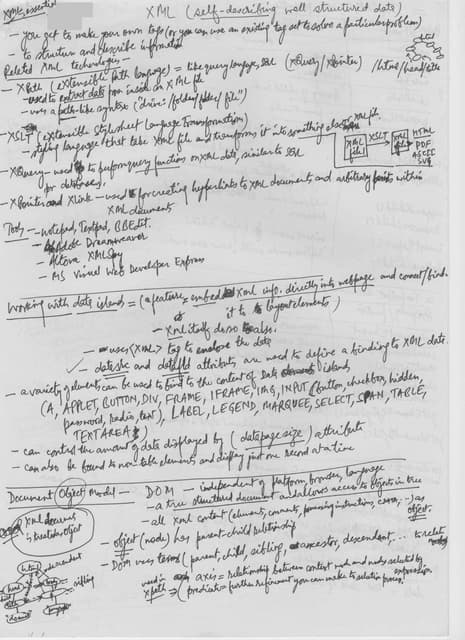 XML essential
XML (self-describing well structured data)
- you get to make your own tags (or you can use an existing tag set to solve a particular problem)
- to structure and describe information
Related XML technologies -
- XPath (eXtensible Path language) = like query language, SQL (XQuery/XPointer) /html/head/title
- used to extract data from inside an XML file
- uses a path-like syntax ("drive:/folder/folder/file")
- XSLT (eXtensible Stylesheet Language Transformation)
- styling language that take XML file and transforms it into something else
XML file XSLT XML file HTML PDF ASCII SVG
- XQuery - used to perform query functions on XML data, similar to SQL
for databases.
- XPointer and Xlink - used for creating hyperlinks to XML documents and arbitrary points within
XML documents
Tools - notepad, Textpad, BBEdit.
- Adobe Dreamweaver
- Altova XMLSpy
- MS Visual Web Developer Express
Working with data islands = (a feature = embed XML info. directly into webpage and connect/bind
it to layout elements)
- XML itself also.
- uses <XML> tag to enclose the data
- datasrc and datafld attributes are used to define a binding to XML data.
- a variety of elements can be used to bind to the content of Data island,
(A, APPLET, BUTTON, DIV, FRAME, IFRAME, IMG, INPUT (button, checkbox, hidden,
password, radio, text), LABEL, LEGEND, MARQUEE, SELECT, SPAN, TABLE,
TEXTAREA)
- can control the amount of data displayed by (datapagesize) attribute
- can also be bound to non-table elements and display just one record at a time
Document Object Model - DOM - independent of platform, browser, language
- a tree structured document and allows access to objects in tree
XML document
is tree like object
- all XML content (elements, comments, processing instructions, ) as
object.
- object (node) has parent-child relationship
- DOM uses terms (parent, child, sibling, ancestor, descendent, ... to relate
used in XPath axis = relationship between context node and nodes selected by
expression.
predicate = further refinement you can make to selection process
html
descendent
head
sibling